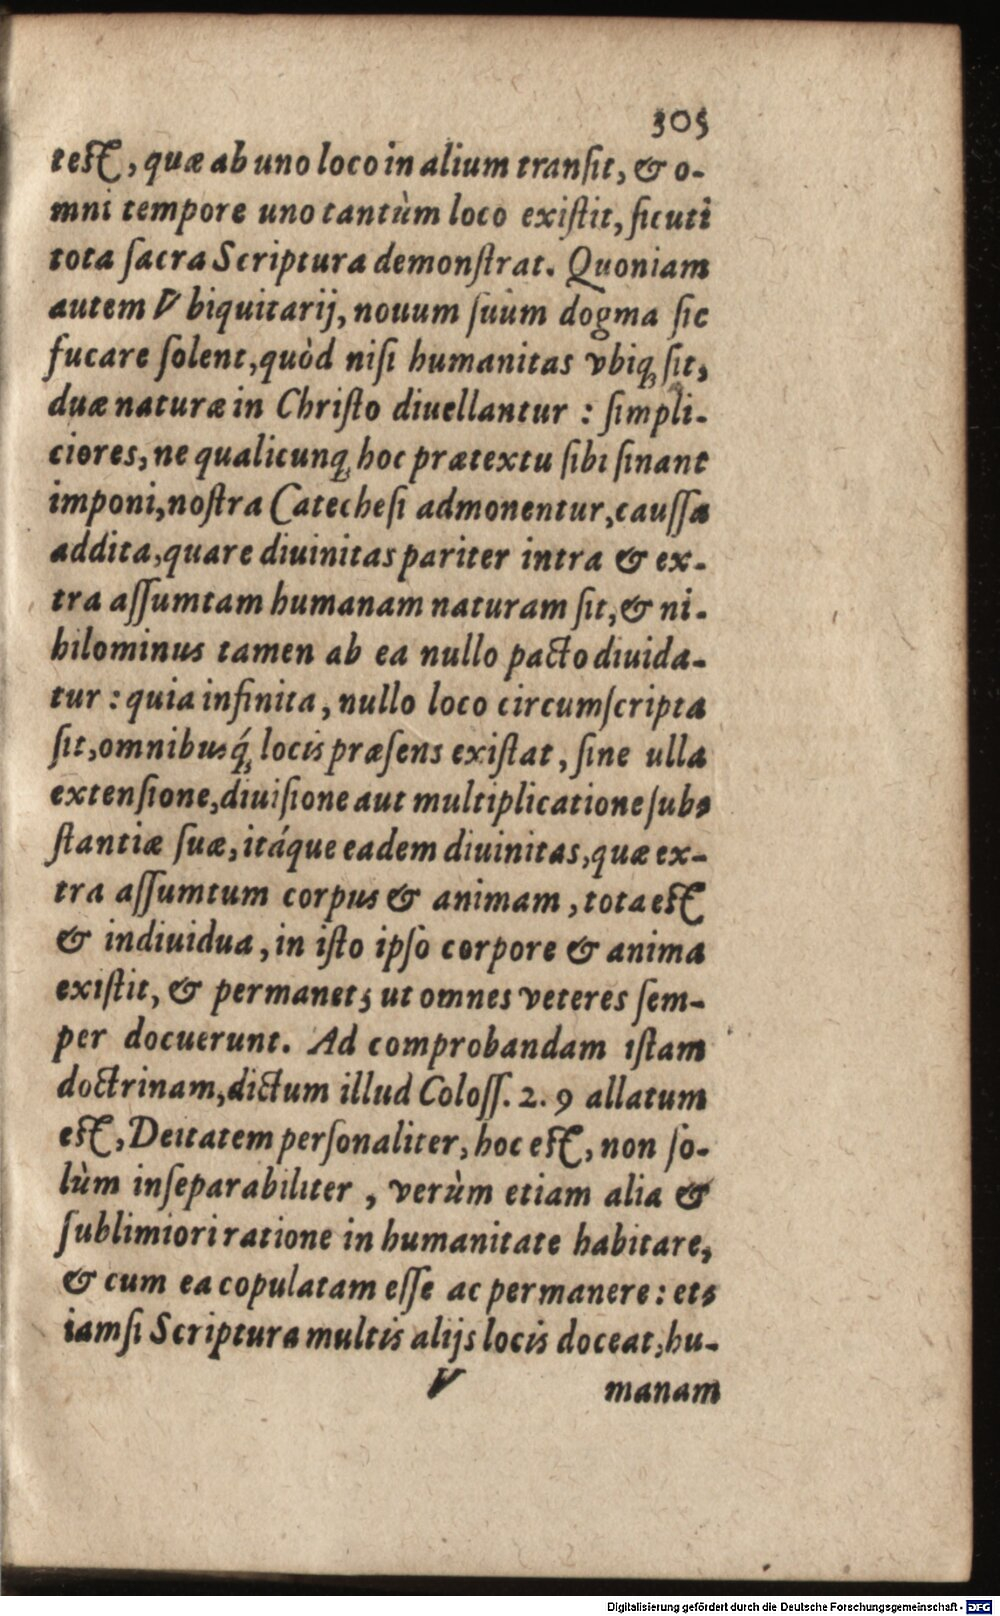 305
test, quæ ab uno loco in alium transit, & o-
mni tempore uno tantùm loco existit, sicuti
tota sacra Scriptura demonstrat. Quoniam
autem Vbiquitarij, nouum suum dogma sic
fucare solent, quòd nisi humanitas vbiq; sit,
duæ naturæ in Christo diuellantur : simpli-
ciores, ne qualicunq; hoc prætextu sibi sinant
imponi, nostra Catechesi admonentur, caussa
addita, quare diuinitas pariter intra & ex-
tra assumtam humanam naturam sit, & ni-
hilominus tamen ab ea nullo pacto diuida-
tur : quia infinita, nullo loco circumscripta
sit, omnibusq́; locis præsens existat, sine ulla
extensione, diuisione aut multiplicatione sub-
stantiæ suæ, itáque eadem diuinitas, quæ ex-
tra assumtum corpus & animam, tota est
& indiuidua, in isto ipso corpore & anima
existit, & permanet; ut omnes veteres sem-
per docuerunt. Ad comprobandam istam
doctrinam, dictum illud Coloss. 2. 9 allatum
est, Deitatem personaliter, hoc est, non so-
lùm inseparabiliter, verùm etiam alia &
sublimiori ratione in humanitate habitare,
& cum ea copulatam esse ac permanere: et-
iamsi Scriptura multis alijs locis doceat, hu-
V manam
Digitalisierung gefördert durch die Deutsche Forschungsgemeinschaft - DFG